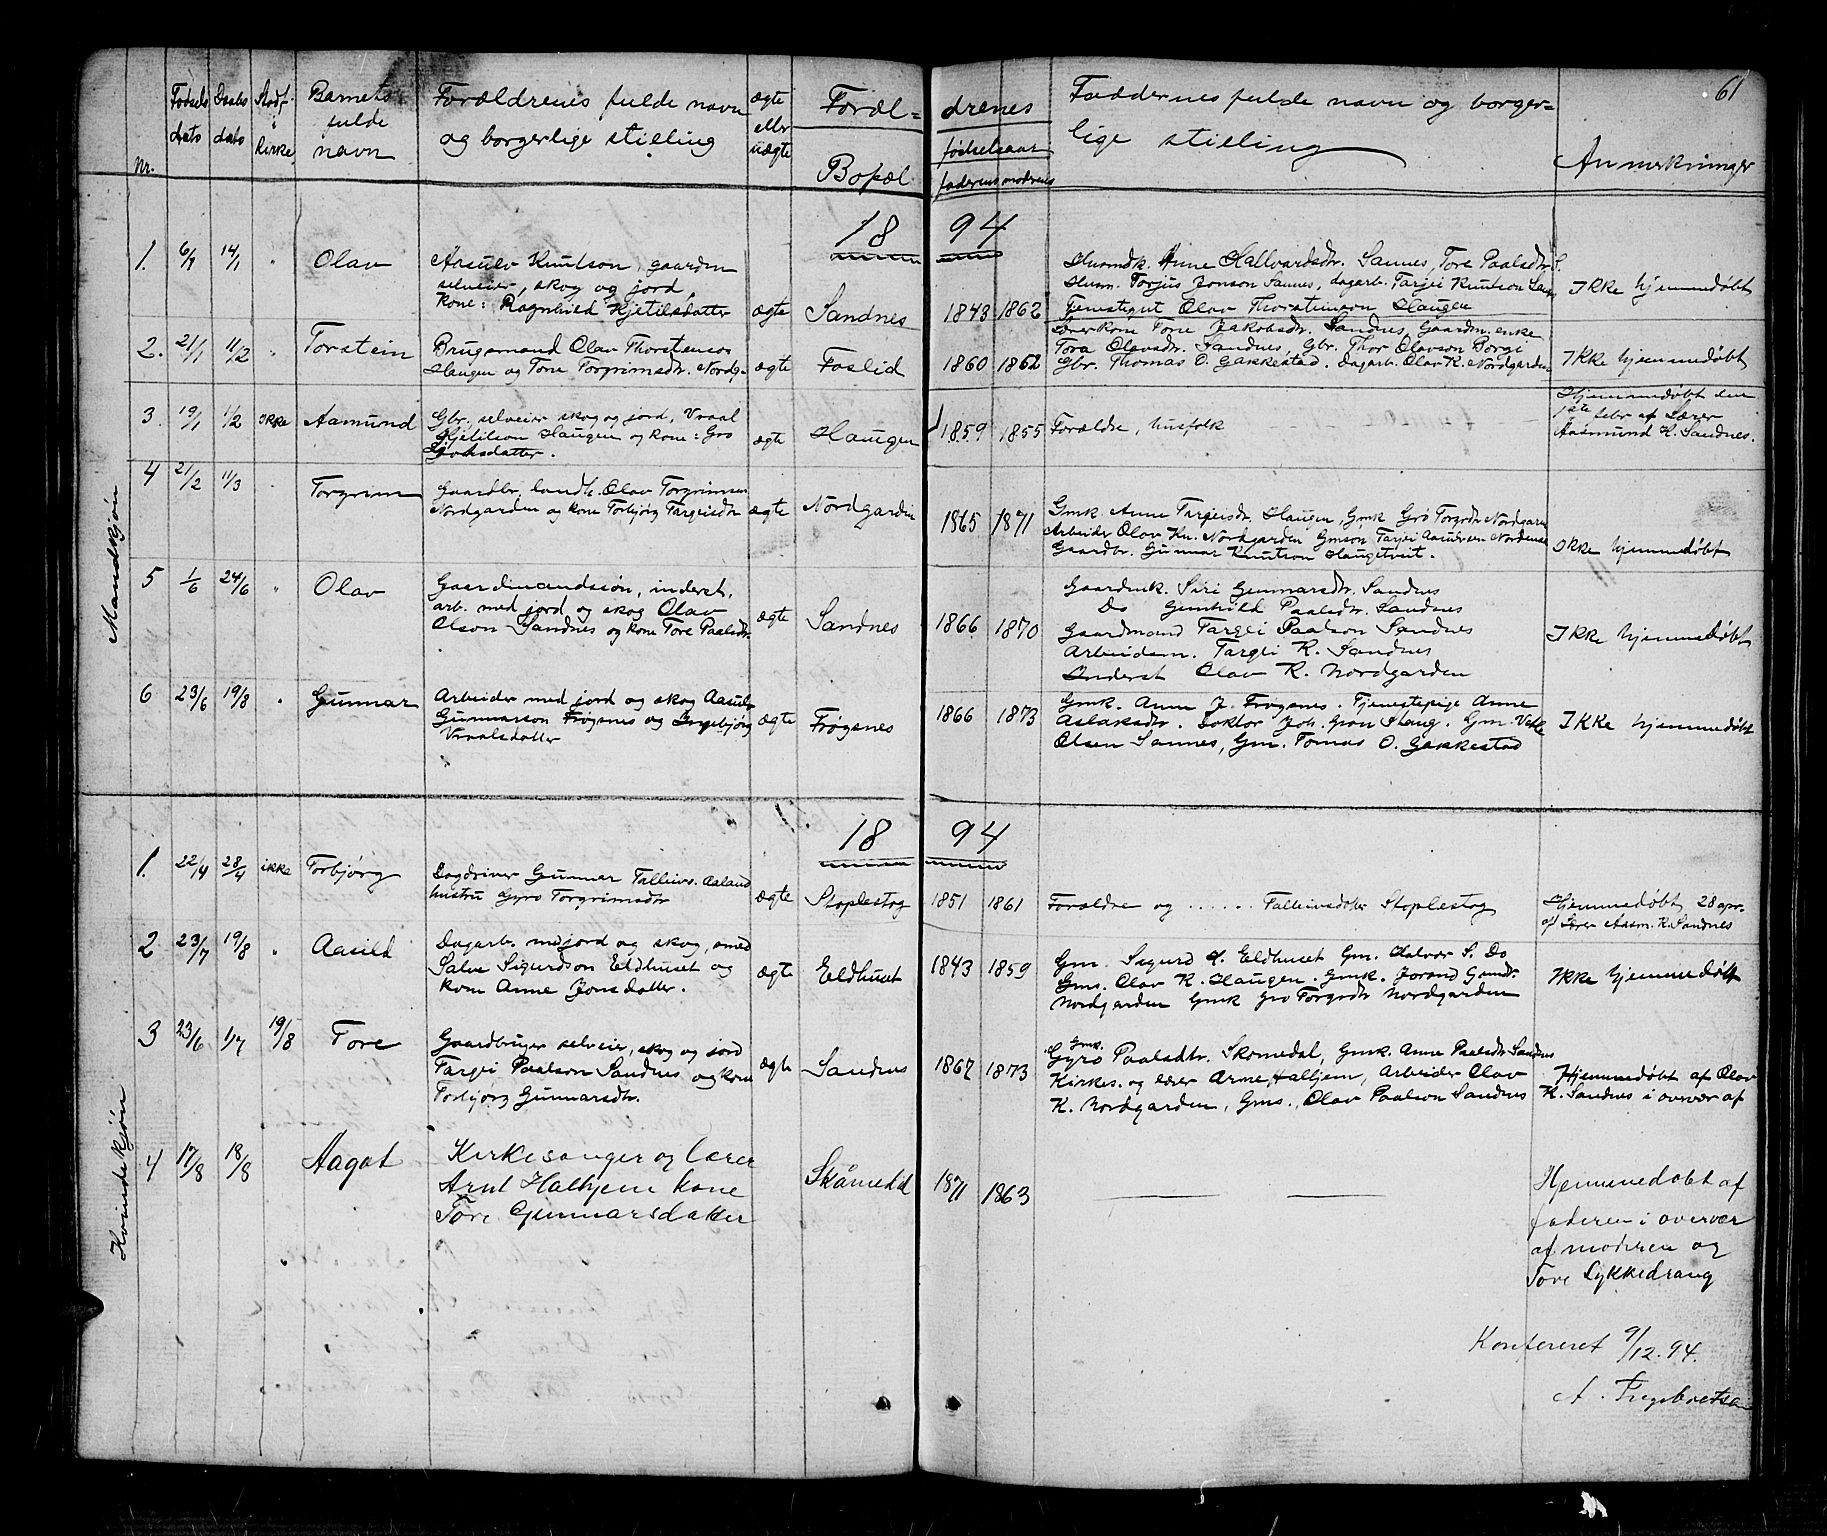 61
Nr.
Fødsels dato
Daabs dato
Stadf. i kirke
Barnets fulde navn
Forældrenes fulde navn og borgerlige stilling
ægte eller uægte
Foræl- drenes
Bopæl
fødselsaar
faderens modrens
Faddernes fulde navn og borger-
lige stilling
Anmerkninger
Mandkjøn
18 94
1. 6/1 14/1 " Olav
Aasulv Knutson, gaardm
selveier, skog og jord,
kone: Ragnhild Kjetilsdatter ægte Sandnes 1843 1862
Husmdk. Anne Hallvardsdtr. Sannes, Tore Paalsdtr S.
Husm. Torjus Jonson Sannes, dagarb. Targei Knutson Sann
Tjenestegut Olav Thorsteinson Haugen
Ikke hjemmedøbt
2. 21/1 11/2 " Torstein
Brugsmand Olav Thorstenson
Haugen og Tone Torgrimsdtr. Nordg. ægte Foslid 1860 1862
Lærerkone Tone Jakobsdtr. Sandnes, Gaardm. enke
Tora Olavsdr. Sandnes, Gbr. Thor Olavson Borgi
Gbr. Thomas O. Gakkestad. Dagarb. Olav K. Nordgarden
Ikke hjemmedøbt
3. 19/1 1/2 Ikke Aamund
Gbr, selveier skog og jord, Vraal
Kjetilson Haugen og kone: Gro
datter. ægte Haugen 1859 1855
Forældre, husfolk
Hjemmedøbt den
1ste febr af Lærer
Aasmund K. Sandnes.
4 21/2 11/3 Torgrim
Gaardbr, landh. Olav Torgrimsen
Nordgarden og kone Torbjørg Targeisdtr ægte Nordgarden 1865 1871
Gmk Anne Targeisdr. Haugen, Gmk Gro Torgrdtr Nordgaren
Arbeider Olav Kn. Nordgarden Gmson Targei Nordenaa
Gaardbr. Gunnar Knutson Haugetveit.
Ikke hjemmedøbt
5 1/6 24/6 " Olav
Gaardmandssøn, inderst,
arb. med jord og skog Olav
Olson Sandnes og kone Tore Paalsdtr. ægte Sandnes 1866 1870
Gaardmk. Siri Gunnarsdtr. Sandnes
Do Gunhild Paalsdtr. Sandnes
Gaardmand Targei Paalson Sandnes
Arbeidsm. Targei K. Sandnes
Inderst Olav K. Nordgarden
Ikke hjemmedøbt
6 23/6 19/8 " Gunnar
Arbeider med jord og skog Aasulv
Gunnarson Frøysnes og Ingebjørg
Vraalsdatter ægte Frøysnes 1866 1873
Gmk. Anne J. Frøysnes. Tjenestepige Anne
Aslaksdtr. Doktor Joh. Haug. Gm.
Olsen Sannes, Gm. Tomas O. Gakkestad
Ikke hjemmedøbt
Kvindekjøn
18 94
1. 22/4 28/4 ikke Torbjørg
Dagdriver Gunnar Talleivs. Aaland
hustru Gyro Torgrimsdtr ægte Stoplestog 1851 1861
Forældre og . . . . . . Talleivsdatter Stoplestog
Hjemmedøbt 28 apr.
af lærer Aasm. K. Sandnes
2 23/7 19/8 " Aasild
Dagarb. m jord og skog, smed
Salve Sigurdson Eeldhuset og
kone Anne Jonsdatter. ægte Eeldhuset 1843 1859
Gm. Sigurd Eeldhuset Gm. S. Do
Gms. Olav K. Haugen. Gmk. Jorand
Nordgarden Gmk Gro Torgrdtr Nordgarden
Ikke hjemmedøbt
3 23/6 1/7 19/8 Tore
Gaardbruger selveier, skog og jord
Targei Paalson Sandnes og kone
Torbjørg Gunnarsdtr. ægte Sandnes 1867 1873
Gmk.
Gyro Paalsdtr. Skomedal, Gmk. Anne Paalsdtr Sandnes
Kirkes. og lærer Arne Halhjem, Arbeider Olav
K. Nordgarden, Gms. Olav Paalson Sandnes
Hjemmedøbt af Olav
K. Sandnes i overvær af
4 17/8 18/8 Aagot
Kirkesanger og lærer
Arnt Halhjem kone
Tore Gunnarsdatter Skåmedal 1871 1863
Hjemmedøbt af
faderen i overvær
af moderen og
Tore Lykkedrang
Konfereret 9/12.94.
A.